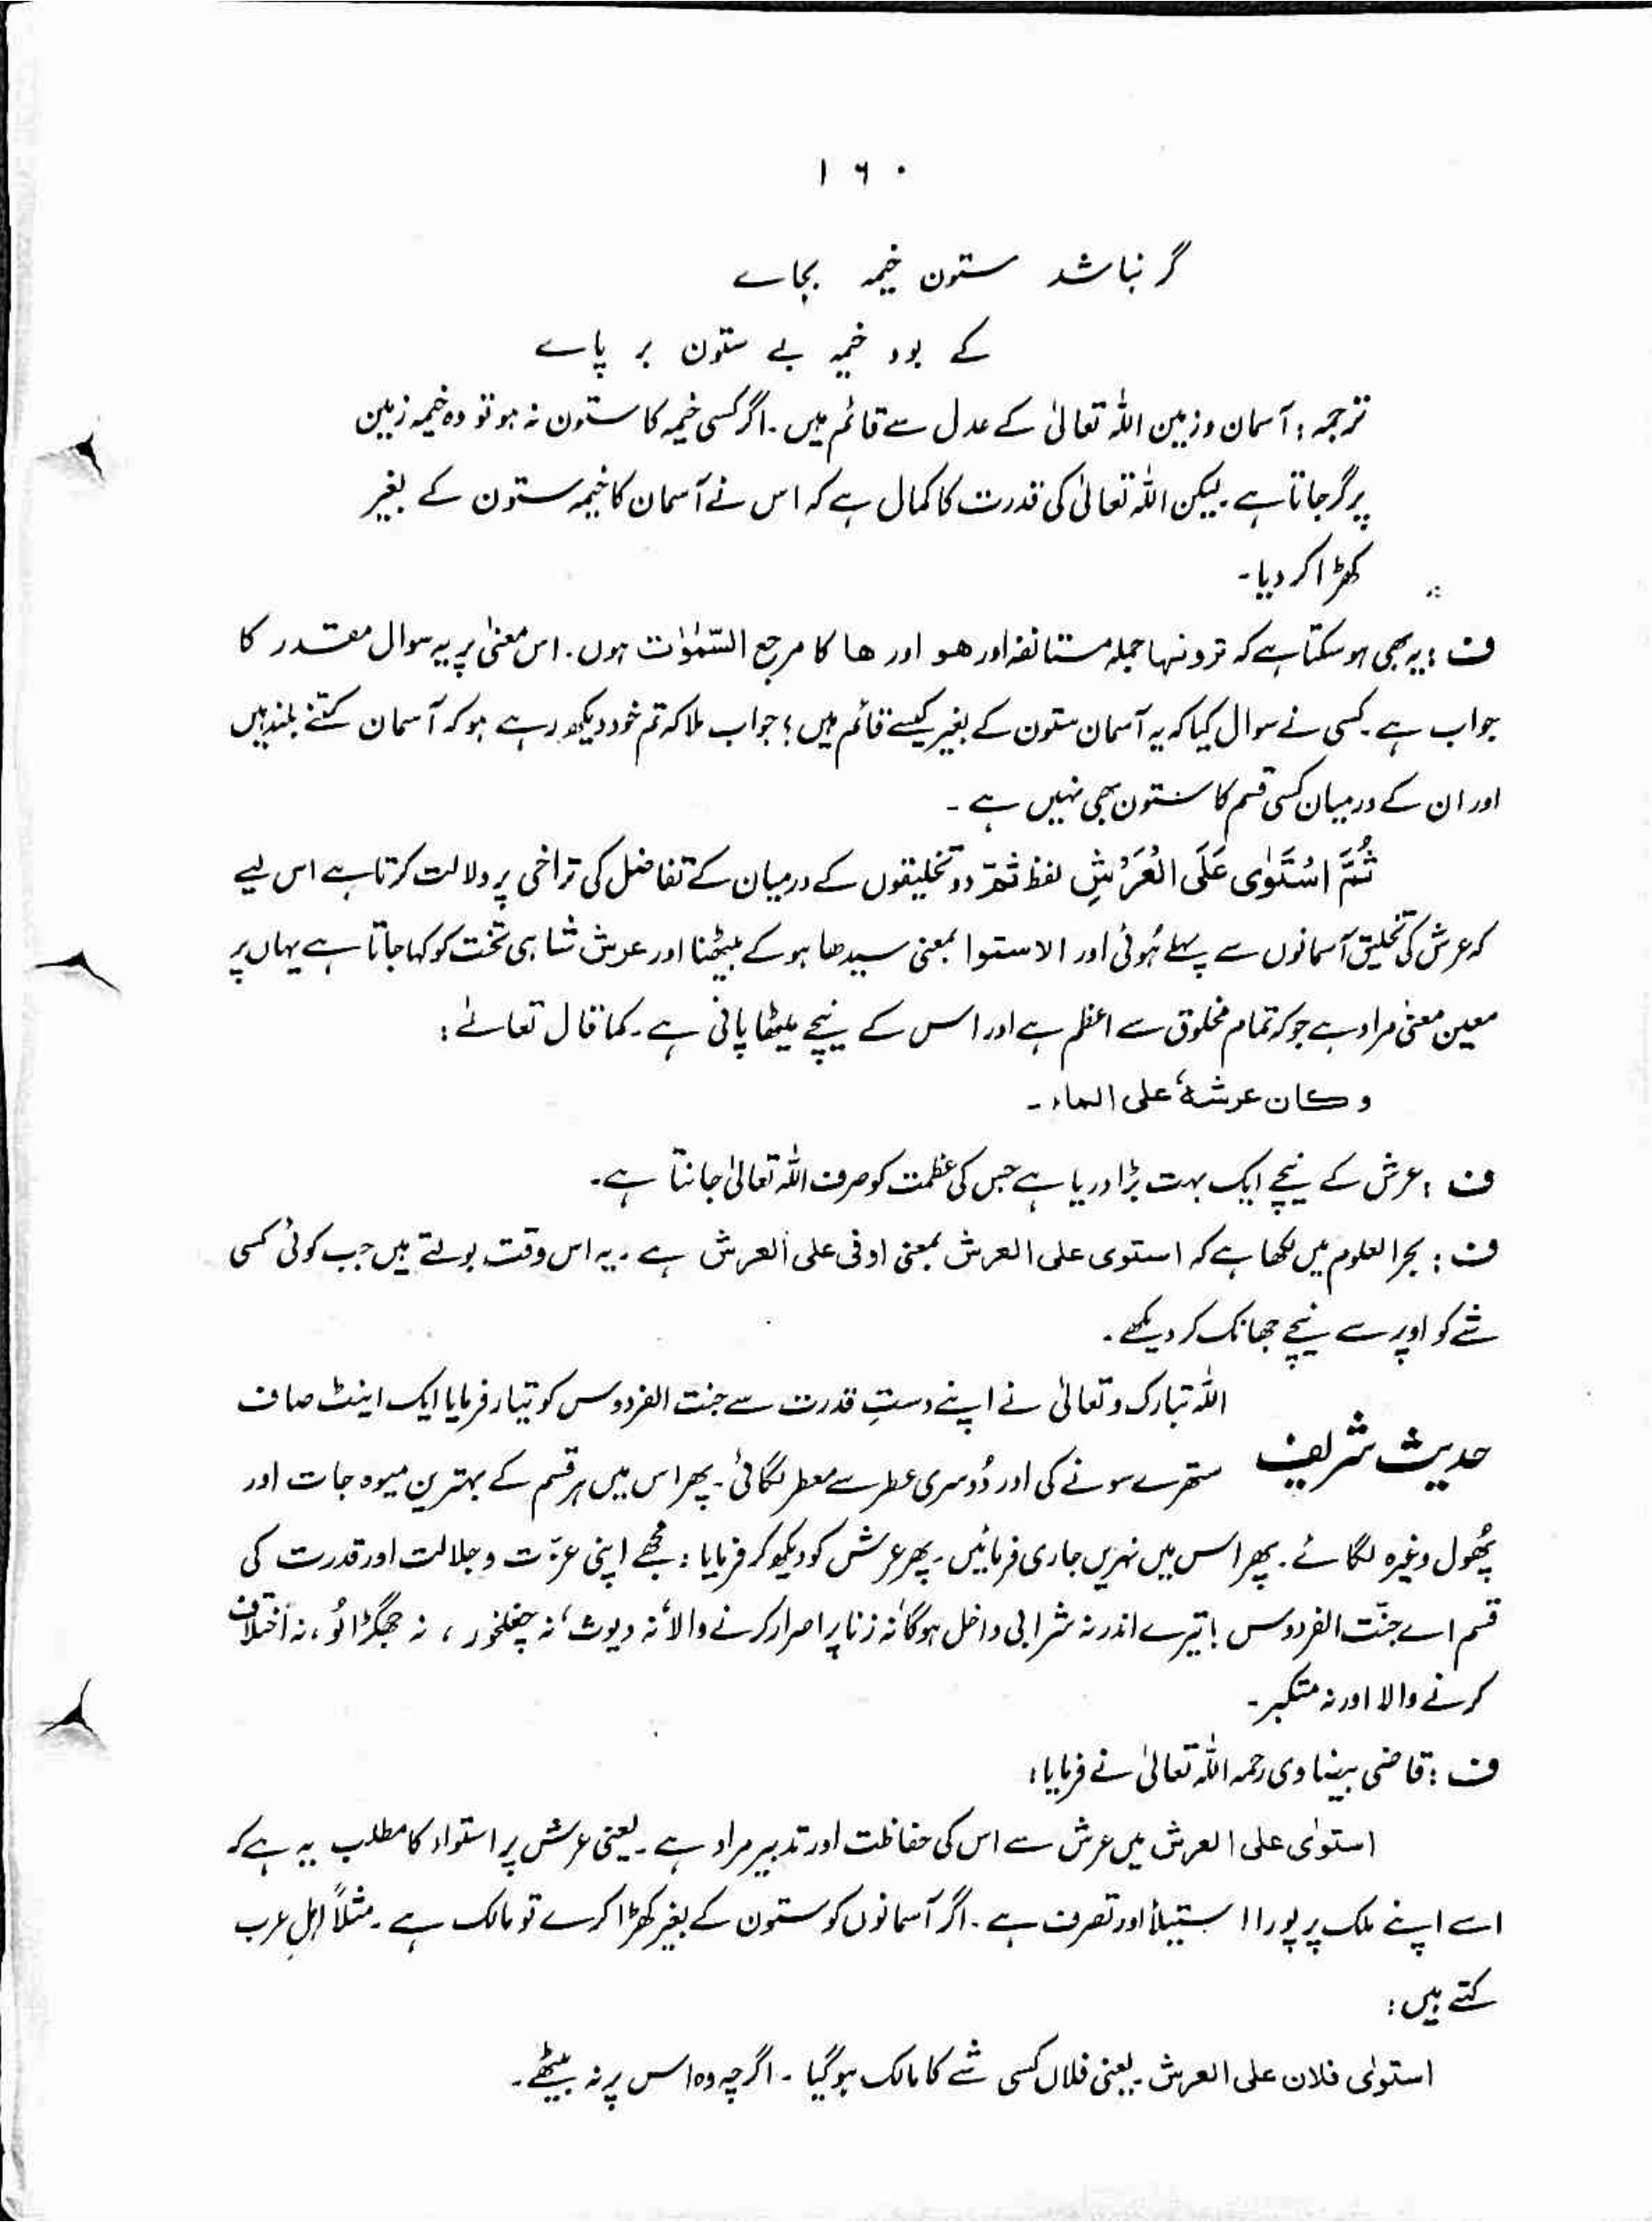 ۱۶۰
گر نباشد ستون خیمہ بجاے
کے بود خیمہ بے ستون بر پاے
ترجمہ: آسمان و زمین اللہ تعالیٰ کے عدل سے قائم ہیں۔ اگر کسی خیمہ کا ستون نہ ہو تو وہ خیمہ زمین
پر گر جاتا ہے۔ لیکن اللہ تعالیٰ کی قدرت کا کمال ہے کہ اس نے آسمان کا خیمہ ستون کے بغیر
کھڑا کر دیا۔
ف: یہ بھی ہو سکتا ہے کہ ترونہا جملہ مستانفہ اور ھو اور ھا کا مرجع السّمٰوٰت ہوں۔ اس معنیٰ پر یہ سوال مقدر کا
جواب ہے۔ کسی نے سوال کیا کہ یہ آسمان ستون کے بغیر کیسے قائم ہیں؛ جواب ملا کہ تم خود دیکھ رہے ہو کہ آسمان کتنے بلند ہیں
اور ان کے درمیان کسی قسم کا ستون بھی نہیں ہے۔
ثُمَّ اسْتَوٰی عَلَی الْعَرْشِ لفظ ثمّ دو تخلیقوں کے درمیان کے تفاضل کی تراخی پر دلالت کرتا ہے اس لیے
کہ عرش کی تخلیق آسمانوں سے پہلے ہُوئی اور الاستوا بمعنی سیدھا ہو کے بیٹھنا اور عرش شاہی تخت کو کہا جاتا ہے یہاں پر
معین معنیٰ مراد ہے جو کہ تمام مخلوق سے اعظم ہے اور اس کے نیچے میٹھا پانی ہے۔ کما قال تعالےٰ:
و کان عرشہٗ علی الماء۔
ف: عرش کے نیچے ایک بہت بڑا دریا ہے جس کی عظمت کو صرف اللہ تعالیٰ جانتا ہے۔
ف: بحر العلوم میں لکھا ہے کہ استوی علی العرش بمعنی اوفی علی العرش ہے۔ یہ اس وقت بولتے ہیں جب کوئی کسی
شے کو اوپر سے نیچے جھانک کر دیکھے۔
حدیث شریف اللہ تبارک و تعالیٰ نے اپنے دستِ قدرت سے جنت الفردوس کو تیار فرمایا ایک اینٹ صاف
ستھرے سونے کی اور دُوسری عطر سے معطر لگائی۔ پھر اس میں ہر قسم کے بہترین میوہ جات اور
پھُول وغیرہ لگائے۔ پھر اس میں نہریں جاری فرمائیں۔ پھر عرش کو دیکھ کر فرمایا: مجھے اپنی عزّت و جلالت اور قدرت کی
قسم اے جنّت الفردوس! تیرے اندر نہ شرابی داخل ہو گا نہ زنا پر اصرار کرنے والا، نہ دیوث، نہ چغلخور، نہ جھگڑالُو، نہ اختلاف
کرنے والا اور نہ متکبر۔
ف: قاضی بیضاوی رحمہ اللہ تعالیٰ نے فرمایا:
استوٰی علی العرش میں عرش سے اس کی حفاظت اور تدبیر مراد ہے۔ یعنی عرش پر استواء کا مطلب یہ ہے کہ
اسے اپنے ملک پر پورا استیلاً اور تصرف ہے۔ اگر آسمانوں کو ستون کے بغیر کھڑا کرے تو مالک ہے۔ مثلاً اہلِ عرب
کہتے ہیں:
استوٰی فلان علی العرش۔ یعنی فلاں کسی شے کا مالک ہو گیا۔ اگرچہ وہ اس پر نہ بیٹھے۔